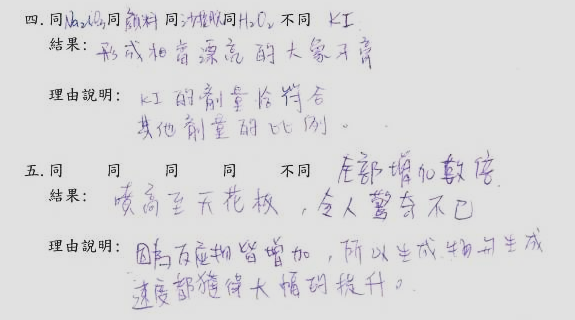 四. 同Na₂CO₃同 顏料 同沙拉脫同H₂O₂ 不同 KI
結果: 形成相當漂亮的大象牙膏
理由說明: KI的劑量恰符合
其他劑量的比例。
五. 同 同 同 同 不同 全部增加數倍
結果: 噴高至天花板，令人驚奇不已
理由說明: 因為反應物皆增加，所以生成物與生成
速度都獲得大幅的提升。